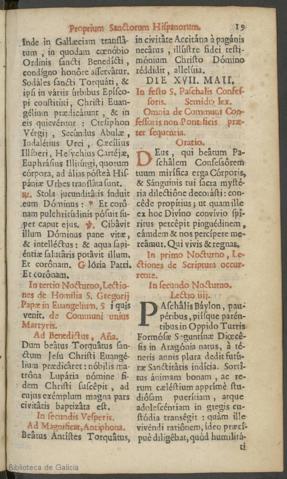 Proprium Sanctorum Hispanorum. 19
Inde in Gallæciam translâ-
tum, in quodam cœnóbio
Ordinis sancti Benedícti,
condígno honóre asservátur.
Sodáles sancti Torquáti, &
ipsi in váriis úrbibus Episco-
pi constitúti, Christi Euan-
gélium prædicárunt, & in
eis quievérunt: Ctésiphon
Vérgij, Secúndus Abulæ,
Indalétius Urci, Cæcílius
Illíberi, Hesychius Cartéjæ,
Euphrásius Illitúrgi, quorum
córpora, ad álias pósteà His-
pániæ Urbes transláta sunt.
℟. Stola jucunditátis índuit
eum Dóminus: * Et coró-
nam pulchritúdinis pósuit su-
per caput ejus. ℣. Cibávit
illum Dóminus pane vitæ,
& intelléctus: & aqua sapi-
éntiæ salutáris potávit illum.
Et corónam. Glória Patri.
Et corónam.
In tertio Nocturno, Lectio-
nes de Homilia S. Gregorij
Papæ in Euangelium, Si quis
venit. de Communi unius
Martyris.
Ad Benedictus, Aña.
Dum beátus Torquátus san-
ctum Jesu Christi Euangé-
lium prædicáret: nóbilis ma-
tróna Lupária nómine fi-
dem Christi suscépit, ad
cujus exémplum magna pars
civitátis baptizáta est.
In secundis Vesperis.
Ad Magnificat, Antiphona.
Beátus Antístes Torquátus,
in civitáte Accitána à pagánis
necátus, illústre fídei testi-
mónium Christo Dómino
réddidit, allelúia.
DIE XVII. MAII,
In festo S. Paschalis Confes-
soris. Semidup lex.
Omnia de Communi Con-
fessoris non Pontificis præ-
ter sequentia.
Oratio.
Deus, qui beátum Pa-
schálem Confessórem
tuum mirífica erga Córporis,
& Sánguinis tui sacra mysté-
ria dilectióne decorásti: con-
céde propítius; ut quam ille
ex hoc Divíno convívio spí-
ritus percépit pinguédinem,
eámdem & nos percípere me-
reámur. Qui vivis & regnas,
In primo Nocturno, Le-
ctiones de Scriptura occur-
rente.
In secundo Nocturno.
Lectio iiij.
Paschális Báylon, pau-
péribus, piísque parén-
tibus in Óppido Turris
Formósæ Seguntínæ Diœcé-
sis in Aragónia natus, à té-
neris annis plura dedit futú-
ræ Sanctitátis indícia. Sortí-
tus ánimam bonam, ac re-
rum cæléstium appriméstu-
diósam puerítiam, atque
adolescéntiam in gregis cu-
stódia transégit: quàm ille
vivéndi ratiónem, ídeo præci-
puè diligébat, quòd humilitá-
ti
Biblioteca de Galicia